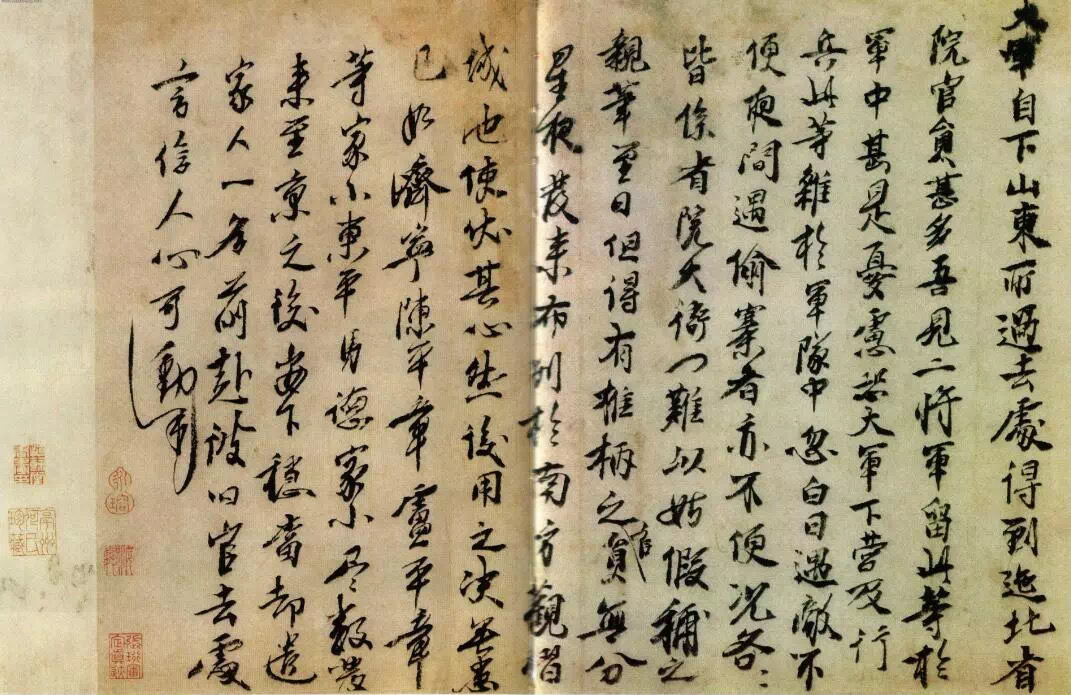 大軍自下山東所過去處得到迤北省
院官員甚多吾見二將軍留此等於
軍中甚是憂慮恐大軍下營及行
兵此等雜於軍隊中忽白日遇敵不
便夜間遇偷寨者亦不便況各〻
皆係省院大衙門難以姑假補之
親筆至日但得有權柄之官員無分
星夜發來布列於南方觀省
城池使伏其心然後用之決無患
已如濟寧陳平章盧平章
等家小東平馬德家小尽數發
來至京之後安下穩當却遣
家人一名前赴彼旧官去處
言信人心可動